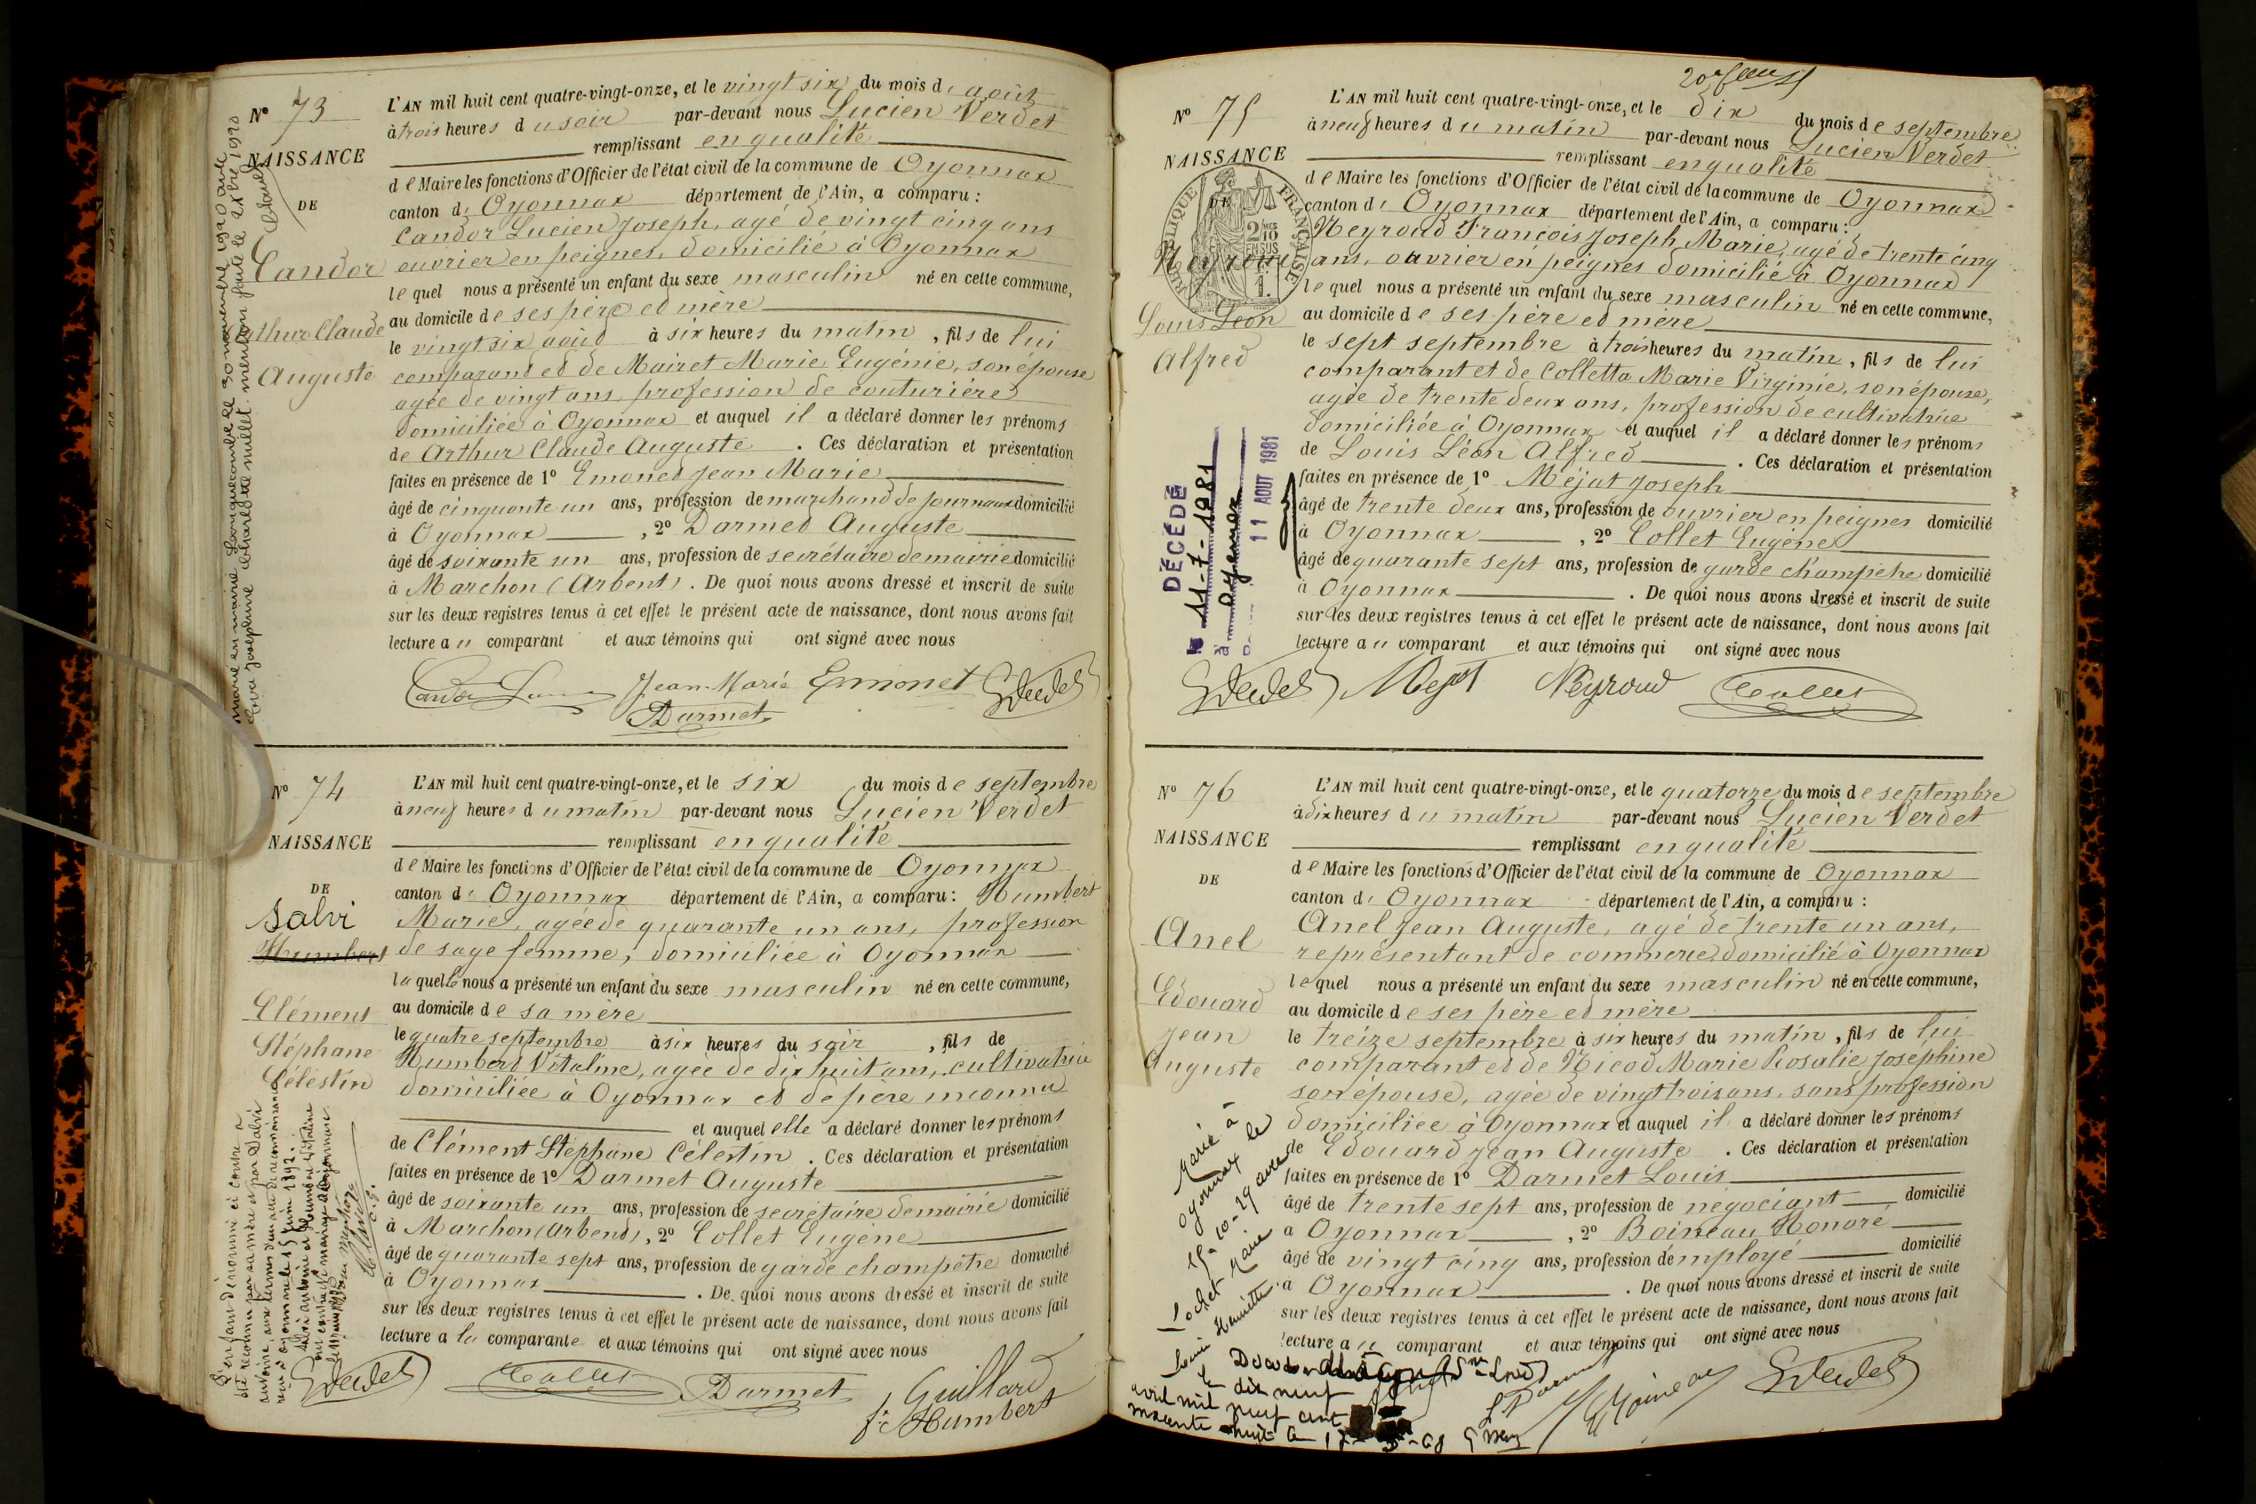 N° 73
NAISSANCE
DE
Candor
Arthur Claude
Auguste
marié en mairie 30 novembre 1920 avec
L'AN mil huit cent quatre-vingt-onze, et le vingt six du mois d'août
à trois heures du soir par-devant nous Lucien Verdet
remplissant en qualité
de Maire les fonctions d'Officier de l'état civil de la commune de Oyonnax
canton d' Oyonnax département de l'Ain, a comparu :
Candor Lucien Joseph, agé de vingt cinq ans
ouvrier en peignes, domicilié à Oyonnax
lequel nous a présenté un enfant du sexe masculin né en cette commune,
au domicile de ses père et mère
le vingt six août à six heures du matin, fils de lui
comparant et de Mairet Marie Eugénie, son épouse
agée de vingt ans, profession de couturière
domiciliée à Oyonnax et auquel il a déclaré donner les prénoms
de Arthur Claude Auguste. Ces déclaration et présentation
faites en présence de 1° Emonet Jean Marie
âgé de cinquante un ans, profession de marchand de journaux domicilié
à Oyonnax, 2° Darmet Auguste
âgé de soixante un ans, profession de secrétaire de mairie domicilié
à Marchon (Arbent). De quoi nous avons dressé et inscrit de suite
sur les deux registres tenus à cet effet le présent acte de naissance, dont nous avons fait
lecture au comparant et aux témoins qui ont signé avec nous
Jean-Marie Emonet
Darmet
N° 74
NAISSANCE
DE
Salvi
Humbert
Clément
Stéphane
Célestin
L'AN mil huit cent quatre-vingt-onze, et le six du mois de septembre
à neuf heures du matin par-devant nous Lucien Verdet
remplissant en qualité
de Maire les fonctions d'Officier de l'état civil de la commune de Oyonnax
canton d' Oyonnax département de l'Ain, a comparu : Humbert
Marie, agée de quarante un ans, profession
de sage femme, domiciliée à Oyonnax
laquelle nous a présenté un enfant du sexe masculin né en cette commune,
au domicile de sa mère
le quatre septembre à six heures du soir, fils de
Humbert Vitaline, agée de dix huit ans, cultivatrice
domiciliée à Oyonnax et de père inconnu
et auquel elle a déclaré donner les prénoms
de Clément Stéphane Célestin. Ces déclaration et présentation
faites en présence de 1° Darmet Auguste
âgé de soixante un ans, profession de secrétaire de mairie domicilié
à Marchon (Arbent), 2° Collet Eugène
âgé de quarante sept ans, profession de garde champêtre domicilié
à Oyonnax. De quoi nous avons dressé et inscrit de suite
sur les deux registres tenus à cet effet le présent acte de naissance, dont nous avons fait
lecture a la comparante et aux témoins qui ont signé avec nous
Collet Darmet
Humbert
N° 75
NAISSANCE
DE
RÉPUBLIQUE FRANÇAISE
Neyroud
Louis Léon
Alfred
DÉCÉDÉ
le 11-7-1981
à Oyonnax
11 AOUT 1981
L'AN mil huit cent quatre-vingt-onze, et le dix du mois de septembre
à neuf heures du matin par-devant nous Lucien Verdet
remplissant en qualité
de Maire les fonctions d'Officier de l'état civil de la commune de Oyonnax
canton d' Oyonnax département de l'Ain, a comparu :
Neyroud François Joseph Marie, agé de trente cinq
ans, ouvrier en peignes domicilié à Oyonnax
lequel nous a présenté un enfant du sexe masculin né en cette commune,
au domicile de ses père et mère
le sept septembre à trois heures du matin, fils de lui
comparant et de Colletta Marie Virginie, son épouse,
agée de trente deux ans, profession de cultivatrice
domiciliée à Oyonnax et auquel il a déclaré donner les prénoms
de Louis Léon Alfred. Ces déclaration et présentation
faites en présence de 1° Méjat Joseph
âgé de trente deux ans, profession de ouvrier en peignes domicilié
à Oyonnax, 2° Collet Eugène
âgé de quarante sept ans, profession de garde champêtre domicilié
à Oyonnax. De quoi nous avons dressé et inscrit de suite
sur les deux registres tenus à cet effet le présent acte de naissance, dont nous avons fait
lecture au comparant et aux témoins qui ont signé avec nous
Mejat Neyroud Collet
N° 76
NAISSANCE
DE
Anel
Edouard
Jean
Auguste
Marié à
Oyonnax le
L'AN mil huit cent quatre-vingt-onze, et le quatorze du mois de septembre
à dix heures du matin par-devant nous Lucien Verdet
remplissant en qualité
de Maire les fonctions d'Officier de l'état civil de la commune de Oyonnax
canton d' Oyonnax département de l'Ain, a comparu :
Anel Jean Auguste, agé de trente un ans,
représentant de commerce domicilié à Oyonnax
lequel nous a présenté un enfant du sexe masculin né en cette commune,
au domicile de ses père et mère
le treize septembre à six heures du matin, fils de lui
comparant et de Nicod Marie Rosalie Joséphine
son épouse, agée de vingt trois ans, sans profession
domiciliée à Oyonnax et auquel il a déclaré donner les prénoms
de Edouard Jean Auguste. Ces déclaration et présentation
faites en présence de 1° Darmet Louis
âgé de trente sept ans, profession de négociant domicilié
à Oyonnax, 2° Boineau Honoré
âgé de vingt cinq ans, profession d'employé domicilié
à Oyonnax. De quoi nous avons dressé et inscrit de suite
sur les deux registres tenus à cet effet le présent acte de naissance, dont nous avons fait
lecture au comparant et aux témoins qui ont signé avec nous
le dix neuf
avril mil neuf cent